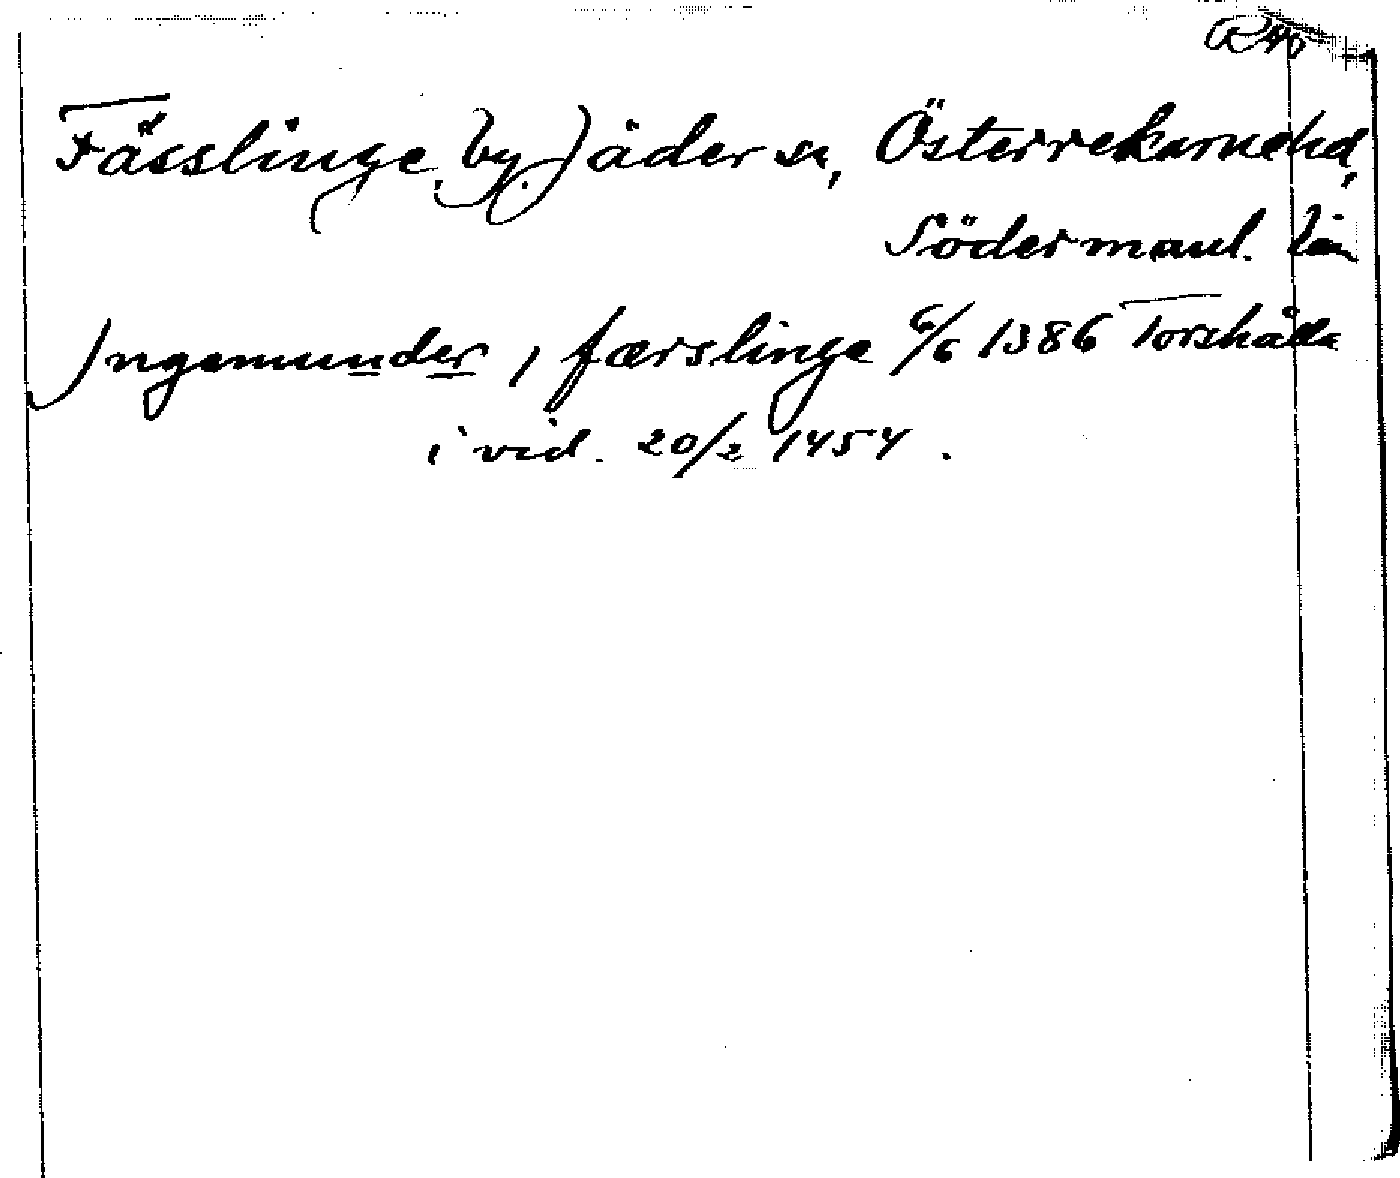 RAp
Fässlinge, by, Jäder sn, Österrekarnehd,
Södermanl. län
Ingemunder, i færslinge 6/6 1386 Torshälla
i vid. 20/2 1454.